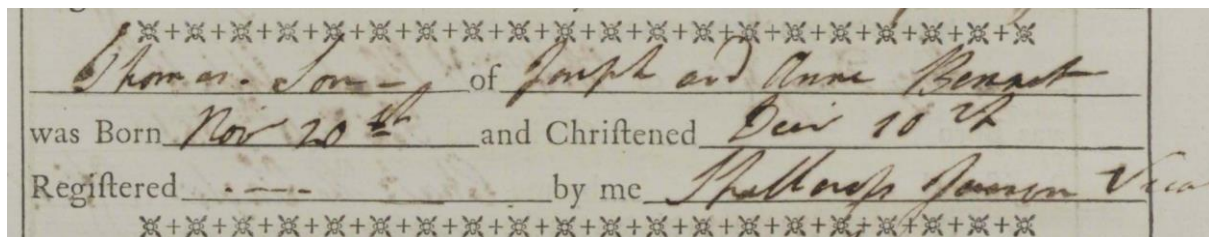 Thomas. Son - of Joseph and Anne Bennet
was Born Nov 20th and Chriſtened Decr 10th
Regiſtered . — - by me Shallcroſs Vica